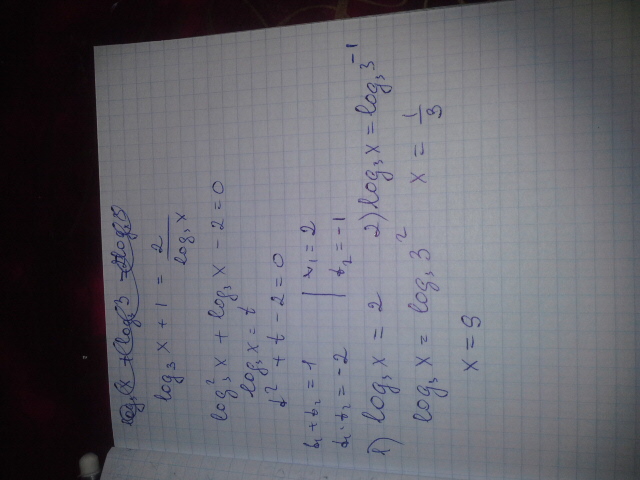 log₃x + log₃3 = 2log
log₃x + 1 = 2/log₃x
log₃²x + log₃x - 2 = 0
log₃x = t
t² + t - 2 = 0
t₁ + t₂ = 1 | t₁ = 2
t₁ · t₂ = -2 | t₂ = -1
1) log₃x = 2 2) log₃x = log₃3⁻¹
log₃x = log₃3² x = 1/3
x = 9